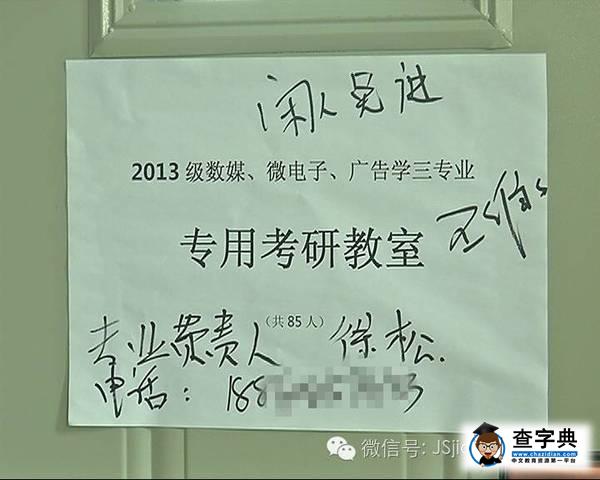 闲人免进
2013级数媒、微电子、广告学三专业
专用考研教室
(共85人)
专业费责人 徐松.
电话: 188
微信号: JSji
查字典
www.chazidian.com
中文教育资源第一平台